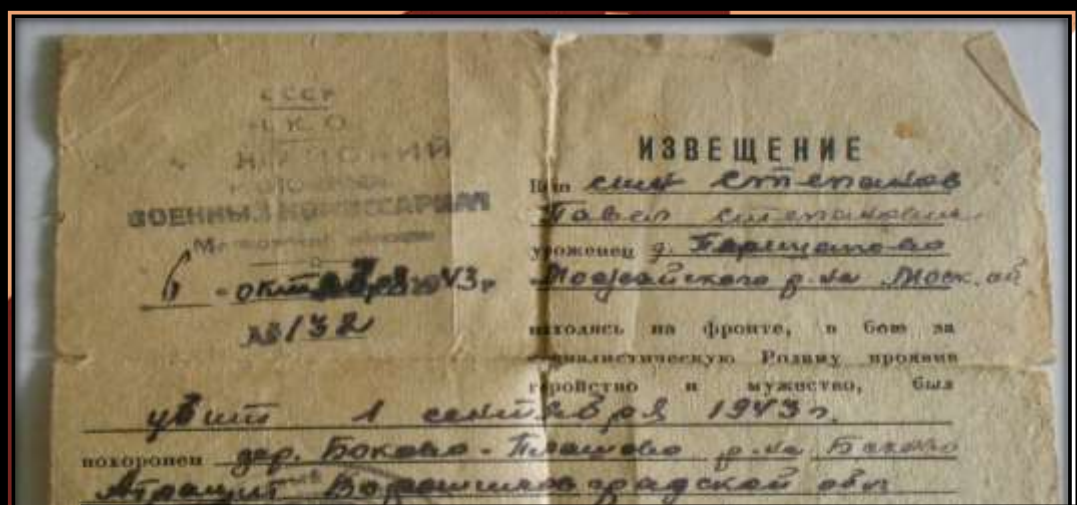 СССР
Н.К.О.
ВОЕННЫЙ КОМИССАРИАТ
6 октября 1943 г
№ 132
ИЗВЕЩЕНИЕ
Ваш сын Степанов
Павел Степанович
уроженец д.
Можайского р-на Моск. об
находясь на фронте, в бою за
социалистическую Родину проявив
геройство и мужество, был
убит 1 сентября 1943 г.
похоронен дер. Боково - Платово р-на Боково
Антрацит Ворошиловградской обл